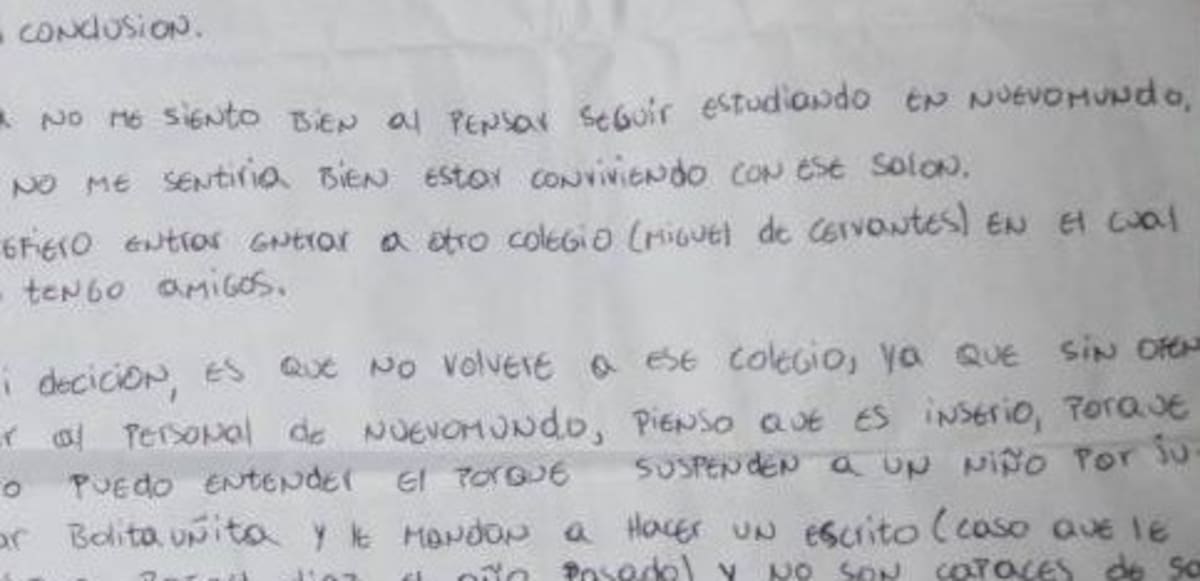 CONCLUSION.
NO ME SIENTO BIEN al PENSAR SEGUIR estudiando EN NUEVOMUNDO,
NO ME SENTIRIA BIEN ESTAR CONVIVIENDO CON ESE SALON.
EFIERO ENTRAR ENTRAR a OTRO COLEGIO (MIGUEL de CERVANTES) EN El CUAL
TENGO AMIGOS.
i DECICION, ES QUE NO VOLVERE a ESE COLEGIO, ya QUE SIN OFEN
r al PERSONAL de NUEVOMUNDO, PIENSO QUE ES INSERIO, PORQUE
o PUEDO ENTENDER El PORQUE SUSPENDEN a UN NIÑO POR JU-
ar Bolitauñita y le MANDAN a HACER UN ESCRITO (CASO QUE lE
el año PASADO) y NO SON CAPACES de